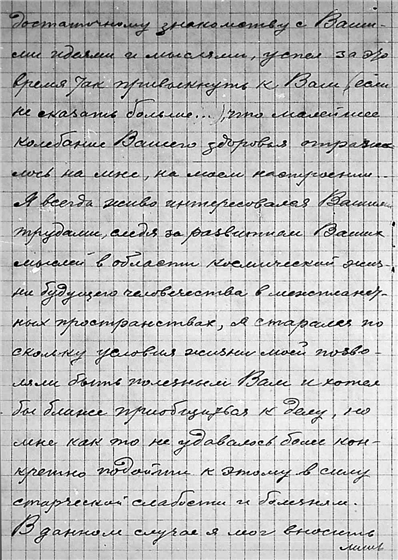 достаточному знакомству с Ваши-
ми идеями и мыслями, успел за это
время так привыкнуть к Вам (если
не сказать больше...), что малейшее
колебание Вашего здоровья отража
лось на мне, на моем настроении...
Я всегда живо интересовался Вашими
трудами, следя за развитием Ваших
мыслей в области космической жиз-
ни будущего человечества в межпланет-
ных пространствах, я старался по
скольку условия жизни моей позво-
ляли быть полезным Вам и хотел
бы ближе приобщиться к делу, но
мне как то не удавалось более кон-
кретно подойти к этому в силу
старческой слабости и болезням.
В данном случае я мог вносить
лишь